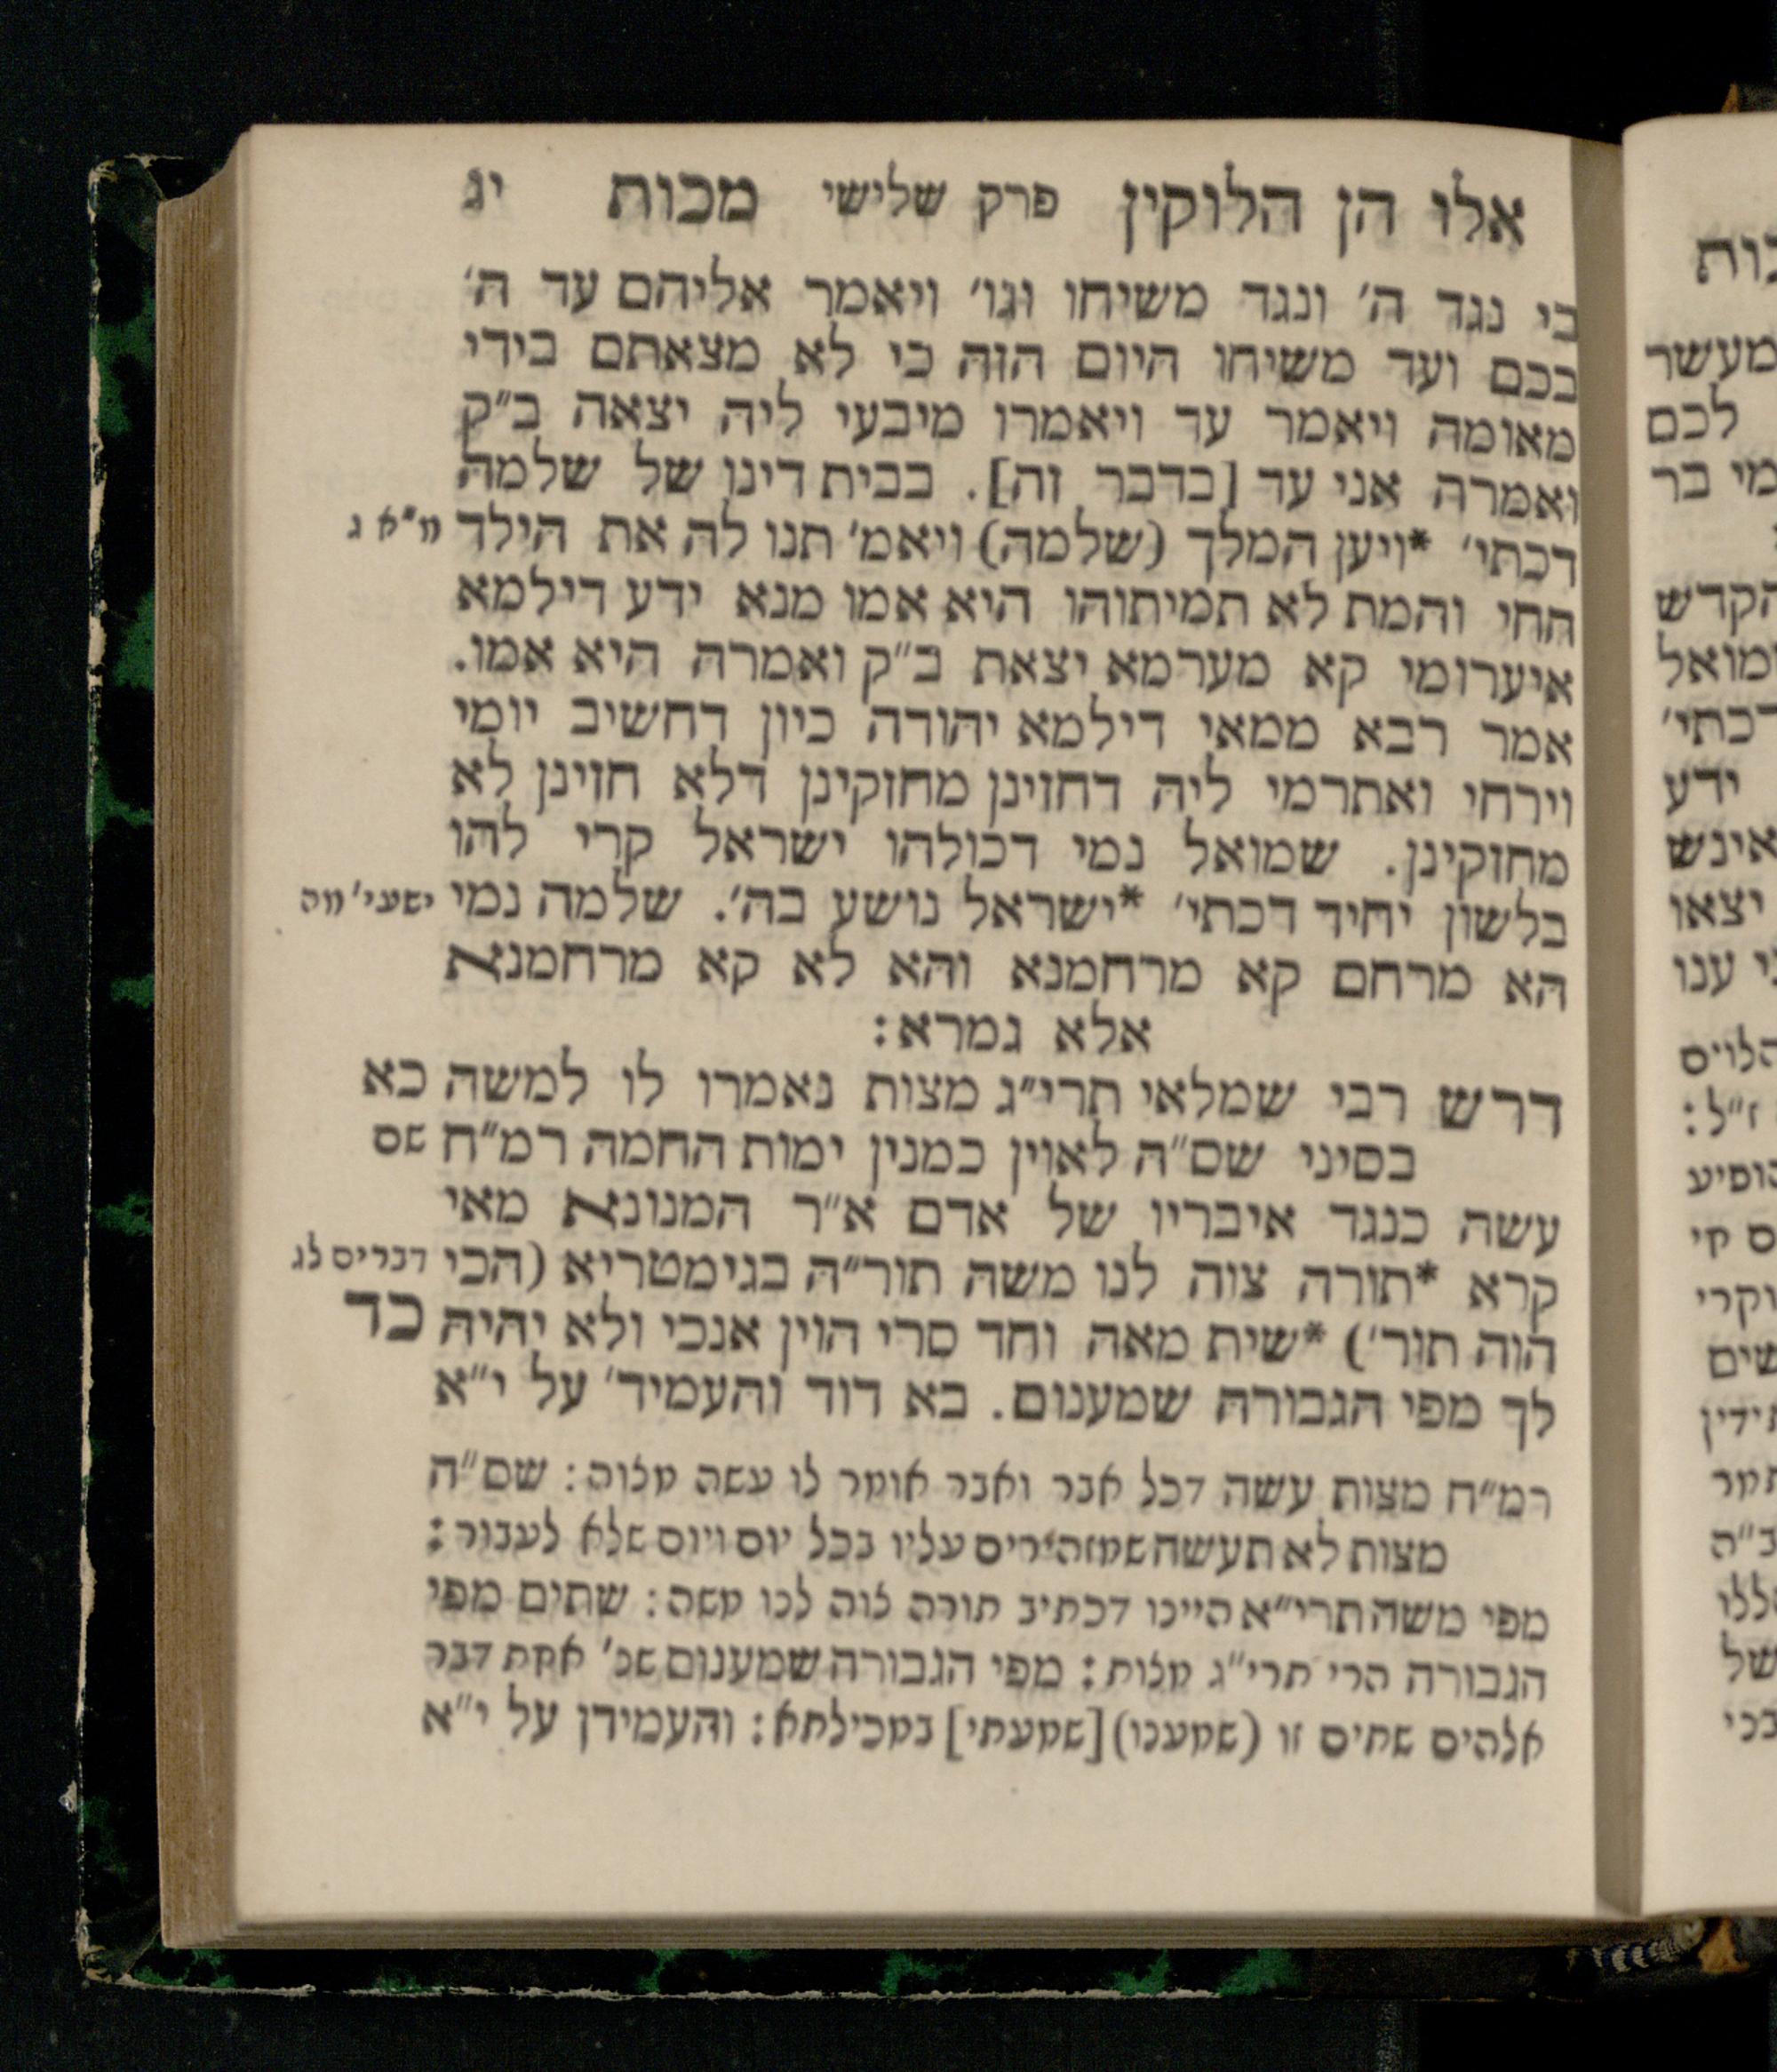 אלו הן הלוקין פרק שלישי מכות יג
בי נגד ה׳ ונגד משיחו וגו׳ ויאמר אליהם עד ה׳
בכם ועד משיחו היום הזה כי לא מצאתם בידי
מאומה ויאמר עד ויאמרו מיבעי ליה יצאה ב״ק
ואמרה אני עד [בדבר זה]. בבית דינו של שלמה
דכתי׳ *ויען המלך (שלמה) ויאמ׳ תנו לה את הילד מ״א ג
החי והמת לא תמיתוהו היא אמו מנא ידע דילמא
איערומי קא מערמא יצאת ב״ק ואמרה היא אמו.
אמר רבא ממאי דילמא יהודה כיון דחשיב יומי
וירחי ואתרמי ליה דחזינן מחזקינן דלא חזינן לא
מחזקינן. שמואל נמי דכולהו ישראל קרי להו
בלשון יחיד דכתי׳ *ישראל נושע בה׳. שלמה נמי ישעי׳ מה
הא מרחם קא מרחמנא והא לא קא מרחמנא
אלא גמרא:
דרש רבי שמלאי תרי״ג מצות נאמרו לו למשה כא
בסיני שס״ה לאוין כמנין ימות החמה רמ״ח שם
עשה כנגד איבריו של אדם א״ר המנונא מאי
קרא *תורה צוה לנו משה תור״ה בגימטריא (הכי דברים לג
הוה תור׳) *שית מאה וחד סרי הוין אנכי ולא יהיה כד
לך מפי הגבורה שמענום. בא דוד והעמיד׳ על י״א
רמ״ח מצות עשה דכל אבר ואבר אומר לו עשה מצוה: שס״ה
מצות לא תעשה שמזהירים עליו בכל יום ויום שלא לעבור:
מפי משה תרי״א היינו דכתיב תורה צוה לנו משה: שתים מפי
הגבורה הרי תרי״ג מצות: מפי הגבורה שמענום שנ׳ אחת דבר
אלהים שתים זו (שמענו) [שמעתי] במכילתא: והעמידן על י״א
כות
מעשר
לכם
מי בר
הקדש
דכתי׳
ידע
אינש
יצאו
י ענו
הלוים
ז״ל:
וקרי
של